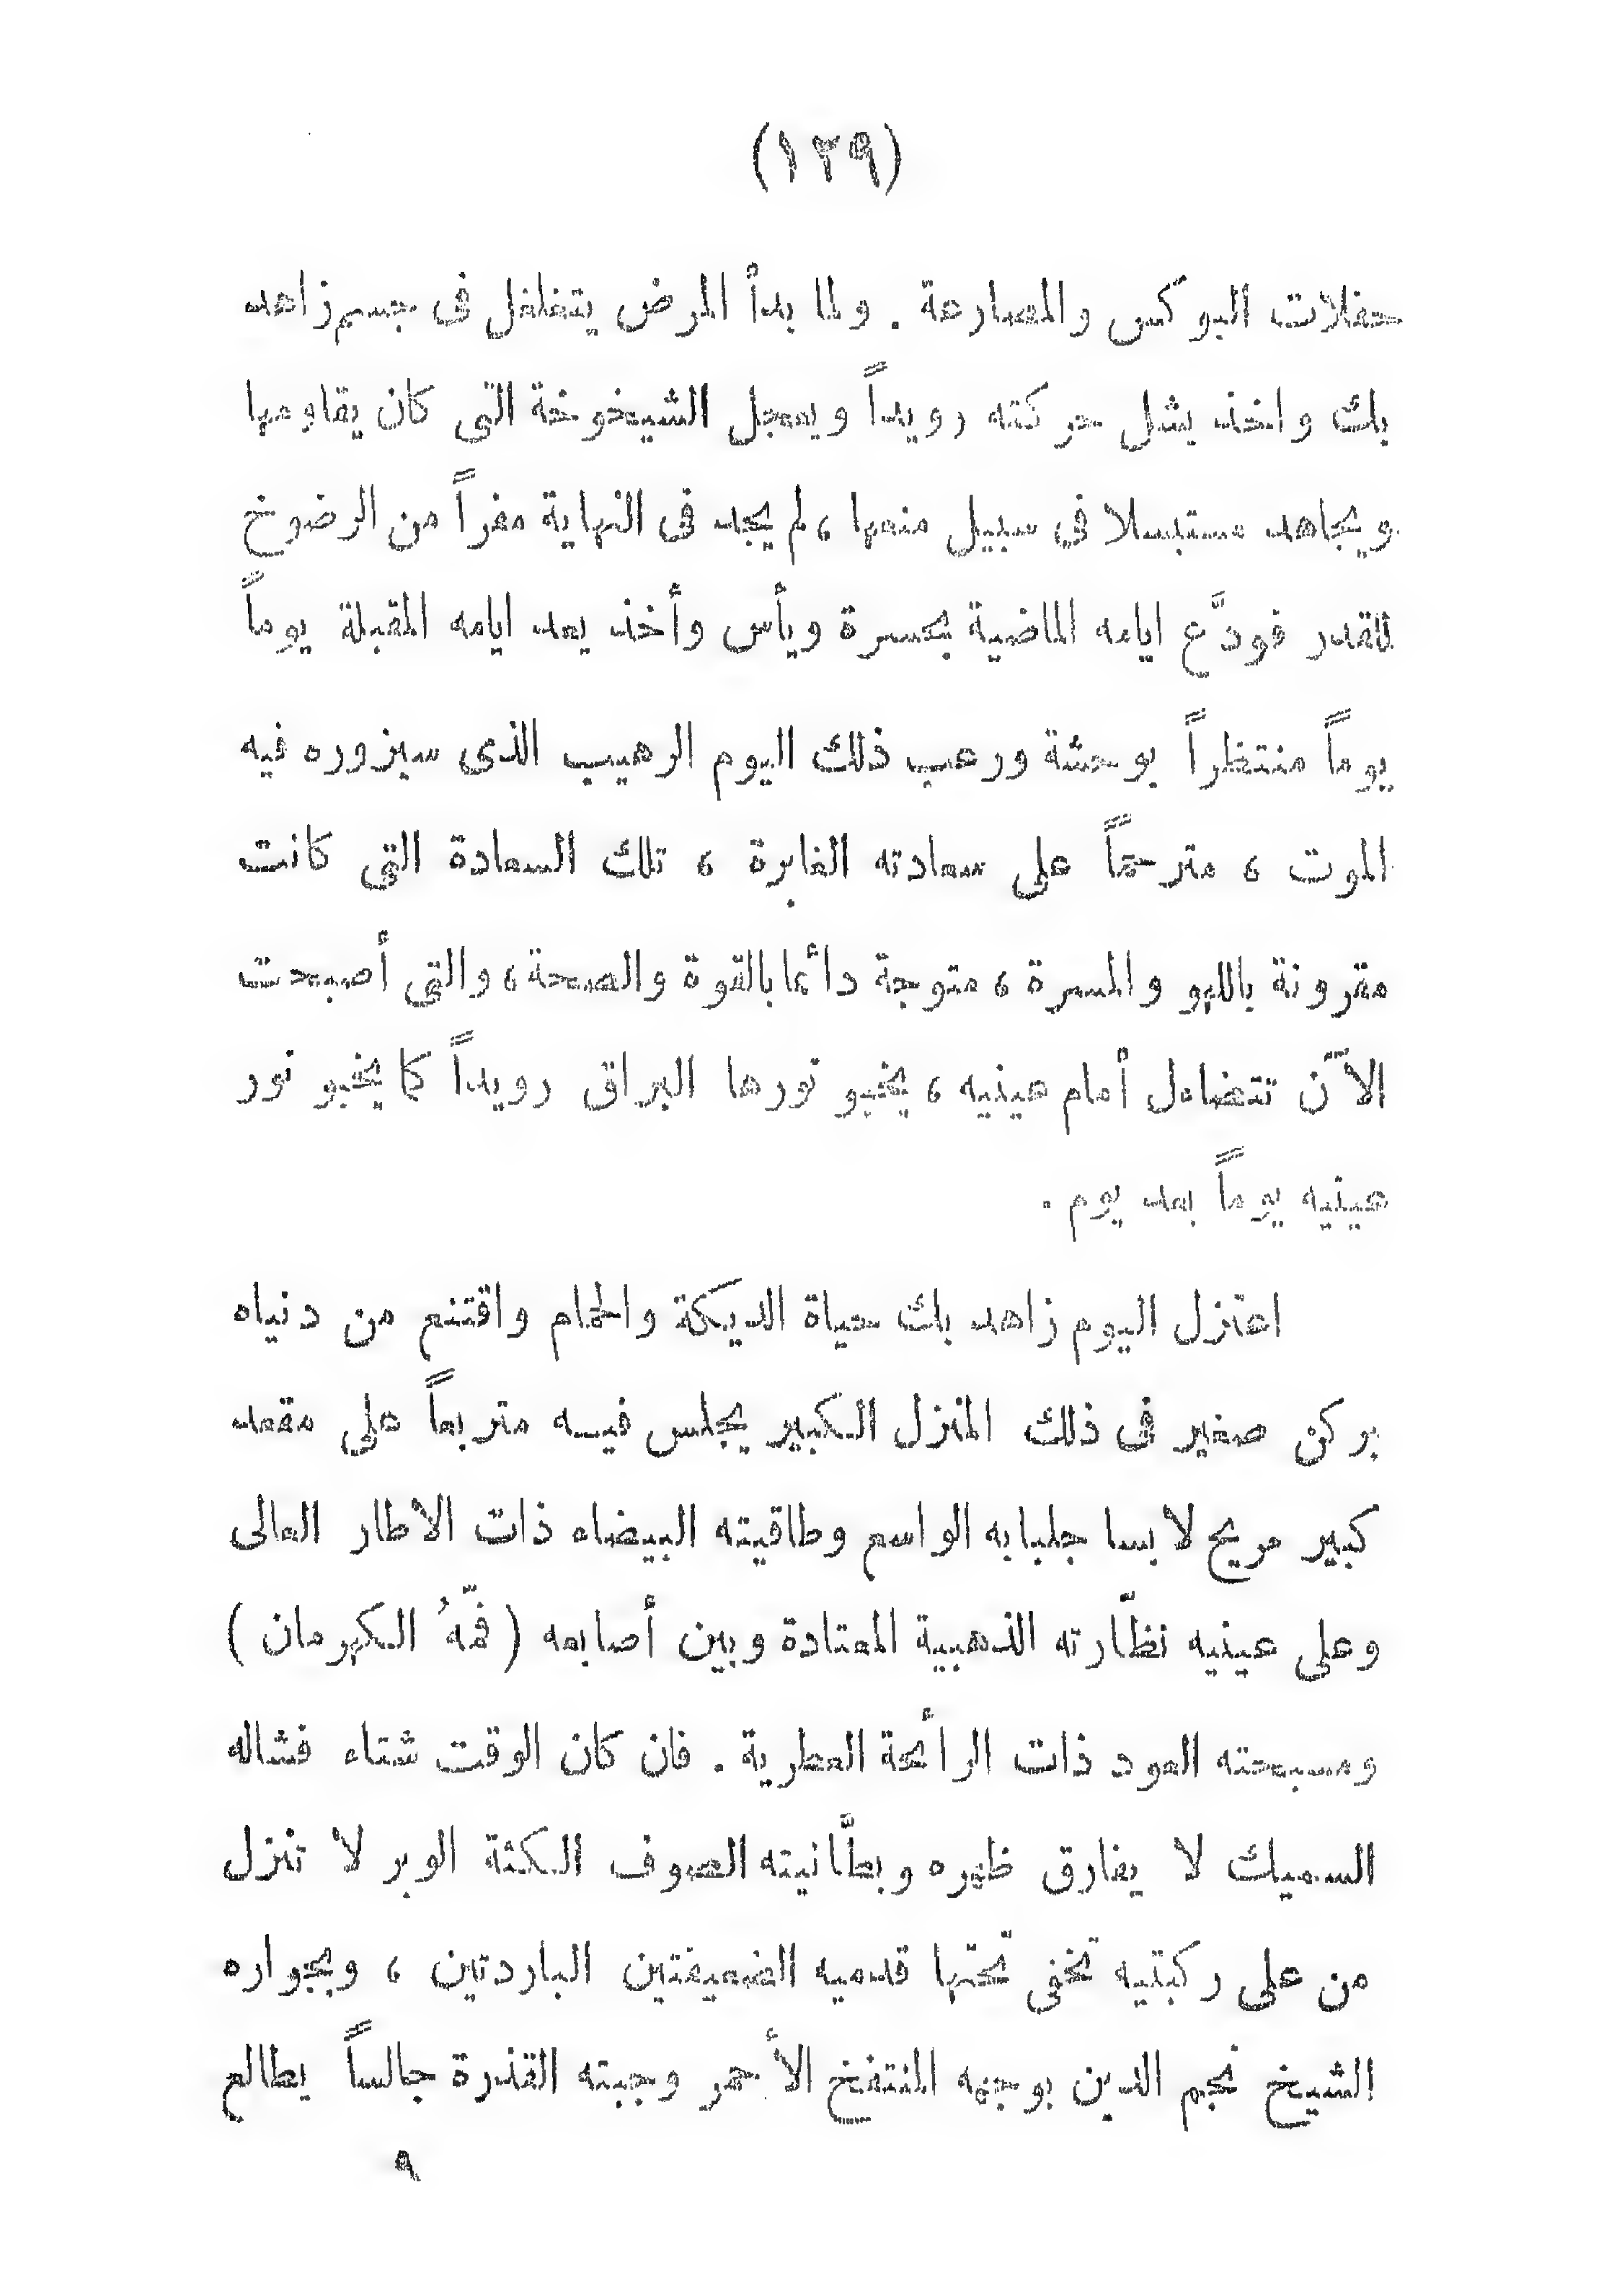 (١٢٩)
حفلات البوكس والمصارعة . ولما بدأ المرض يتغلغل فى جسم زاهد
بك واخذ يشل حركته رويداً ويعجل الشيخوخة التى كان يقاومها
ويجاهد مستبسلا فى سبيل منعها ، لم يجد فى النهاية مفراً من الرضوخ
للقدر فودَّع ايامه الماضية بحسرة ويأس وأخذ يعد ايامه المقبلة يوماً
يوماً منتظراً بوحشة ورعب ذلك اليوم الرهيب الذى سيزوره فيه
الموت ، مترحماً على سعادته الغابرة ، تلك السعادة التى كانت
مقرونة باللهو والمسرة ، متوجة دائما بالقوة والصحة ، والتى أصبحت
الآن تتضاءل أمام عينيه ، يخبو نورها البراق رويداً كما يخبو نور
عينيه يوماً بعد يوم .
اعتزل اليوم زاهد بك حياة الديكة والحمام واقتنع من دنياه
بركن صغير فى ذلك المنزل الكبير يجلس فيه متربعاً على مقعد
كبير مريح لابسا جلبابه الواسع وطاقيته البيضاء ذات الاطار العالى
وعلى عينيه نظّارته الذهبية المعتادة وبين أصابعه ( فمّهُ الكهرمان )
ومسبحته العود ذات الرأئحة العطرية . فان كان الوقت شتاء فشاله
السميك لا يفارق ظهره وبطَّانيته الصوف الكثة الوبر لا تنزل
من على ركبتيه تخفى تحتها قدميه الضعيفتين الباردتين ، وبجواره
الشيخ نجم الدين بوجهه المنتفخ الأحمر وجبته القذرة جالساً يطالع
٩